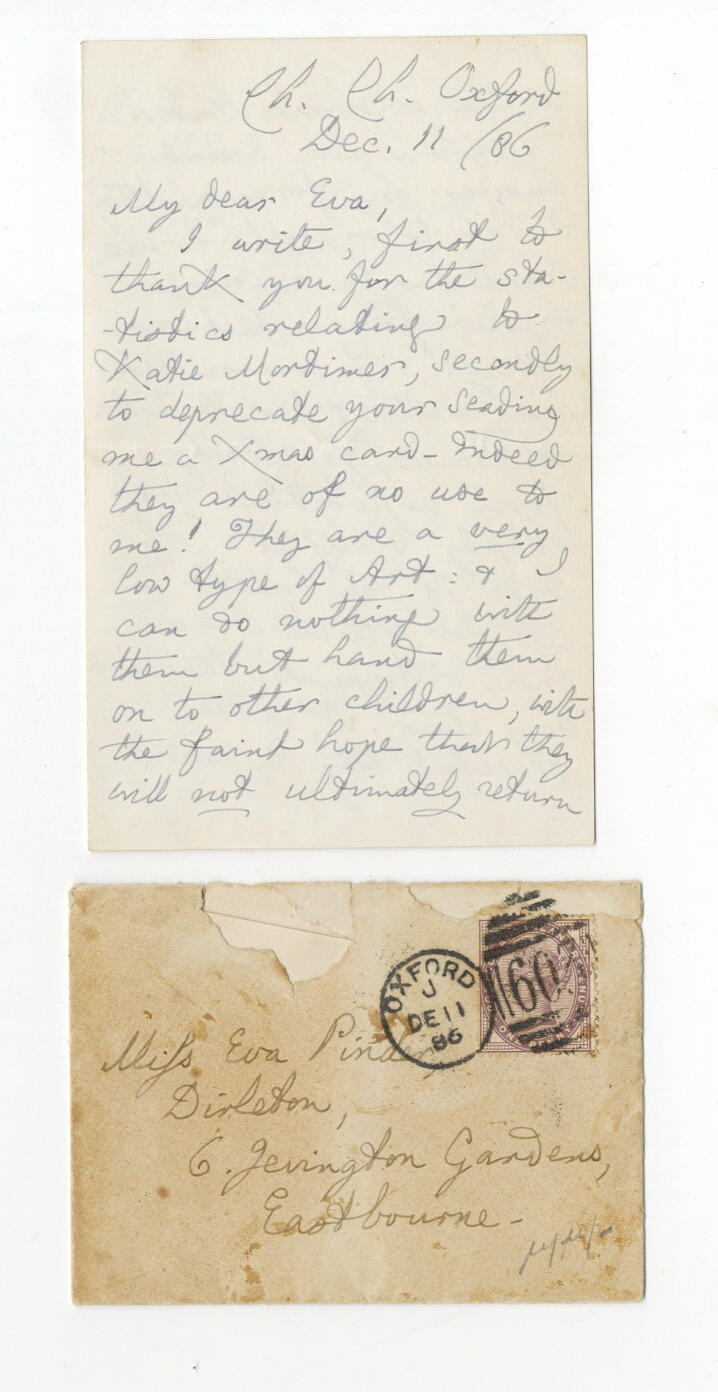 Ch. Ch. Oxford
Dec. 11/86
My dear Eva,
I write, first to
thank you for the sta-
-tistics relating to
Katie Mortimer, secondly
to deprecate your sending
me a Xmas card - Indeed
they are of no use to
me! They are a very
low type of Art: & I
can do nothing with
them but hand them
on to other children, with
the faint hope that they
will not ultimately return
OXFORD
J
DE 11
86
Miss Eva Pinder
Dirleton,
6. Jevington Gardens,
Eastbourne -